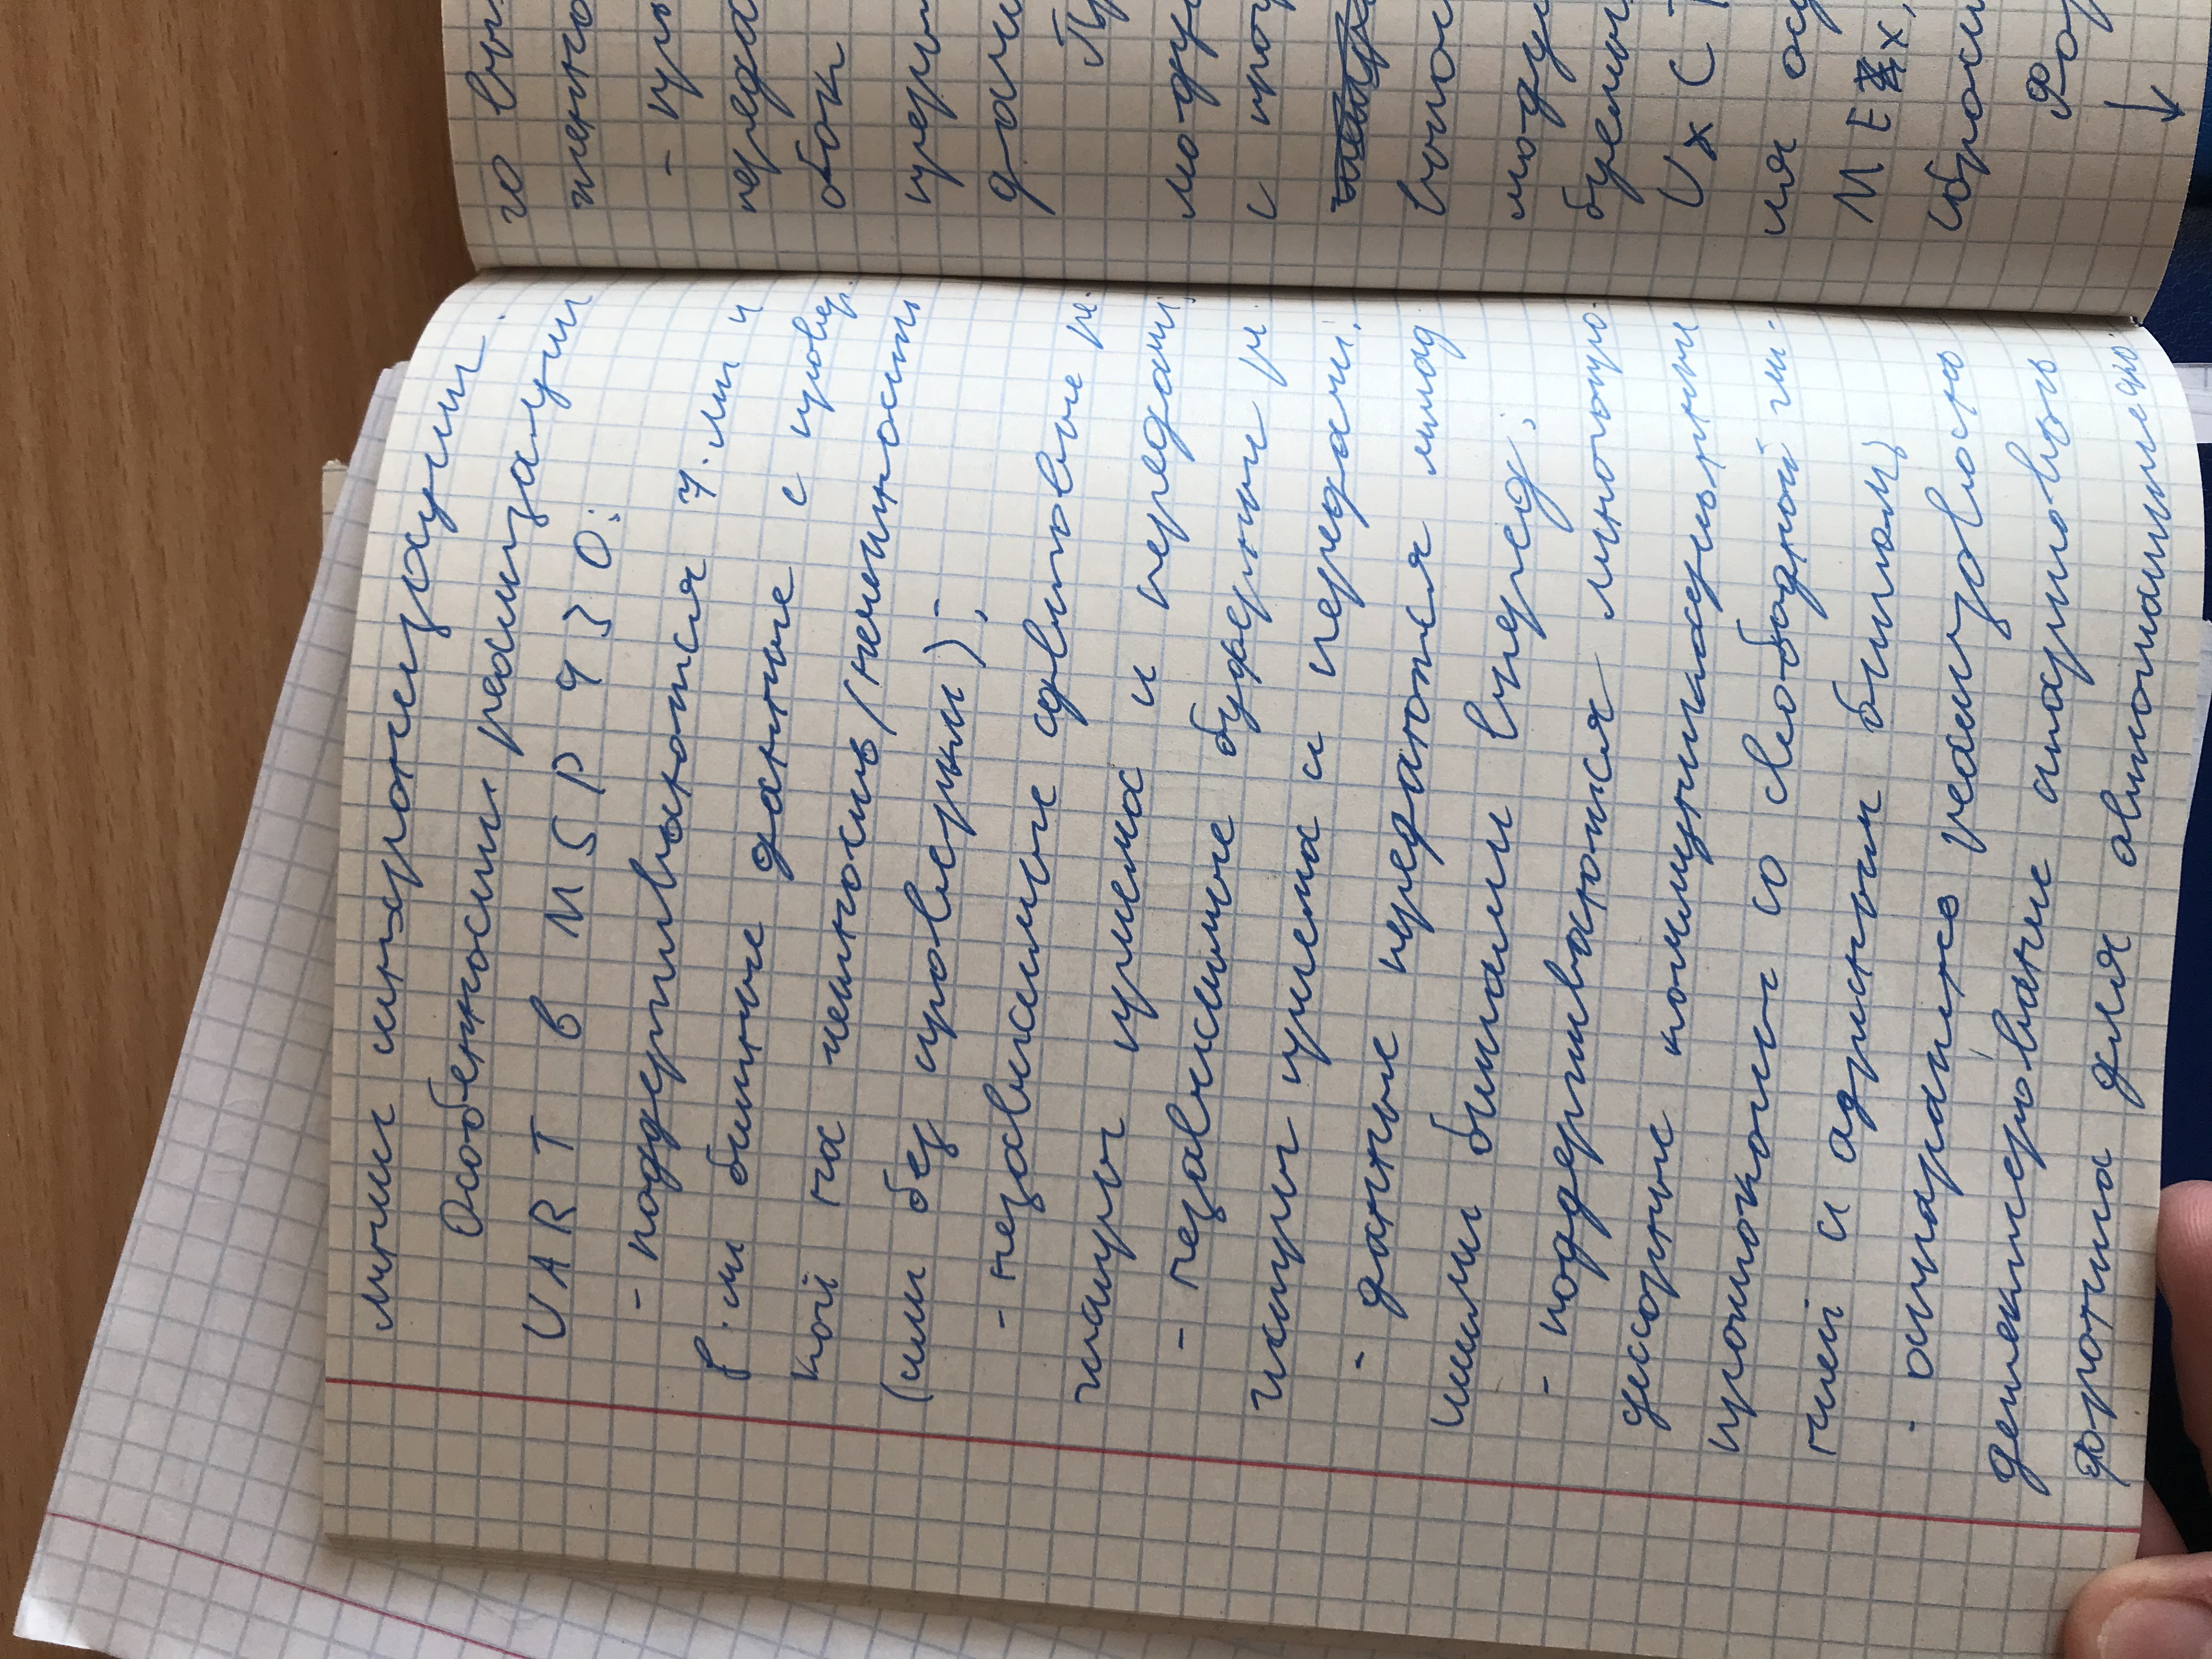 линии синхронизации.
Особенности реализации
UART в MSP 430:
- поддерживаются 7-ми и
8-ми битные данные с провер-
кой на четность/нечетность
(или без проверки);
- независимые сдвиговые ре-
гистры приема и передачи;
- независимые буферные ре-
гистры приема и передачи;
- данные передаются млад
шими битами вперед;
- поддерживаются многопро-
цессорные коммуникационные
протоколы со свободной ли-
нией и адресным битом;
- аппаратно реализовано
детектирование стартового
фронта для автоматическо-
го
женно
-
переда
бок
дачи
моду
с
моду
UxCT
ля
MEx,
↓